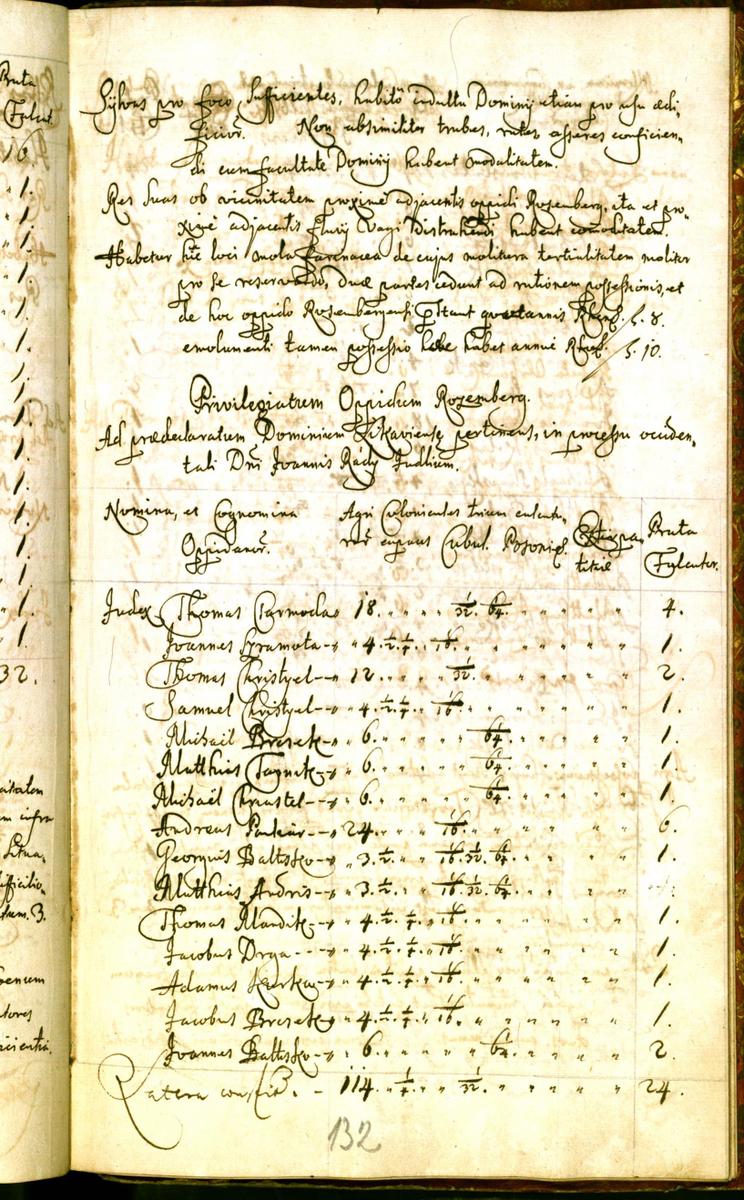 Bruta
Fulcat.
16.
1.
1.
1.
1.
1.
1.
1.
1.
1.
1.
1.
1.
1.
1.
32.
Sylvas pro foco sufficientes, habito indultu Dominij etiam pro usu ædi-
ficior. Non absimiliter trabes, asseres conficien-
di cum facultate Dominij habent modalitatem.
Res suas ob vicinitatem proxime adjacentis oppidi Rosenberg, ita et pro-
xime adjacentis fluvij Vagi distrahendi habent comoditatem.
Habetur hic loci mola farinacea de cujus molitura tertialitatem molitor
pro se reservando, duæ partes cedunt ad rationem possessionis, et
de hoc oppido Rosenbergensi præstant quotannis Rhenf. f. 8.
emolumenti tamen possessio habet annue Rhenf. f. 10.
Privilegiatum Oppidum Rozemberg.
Ad prædeclaratum Dominium Likaviense pertinens, in processu occiden-
tali Dni Joannis Rády Judlium.
Nomina, et Cognomina
Oppidanor.
Agri Colonicales trium calcatu-
rar capaces Cubul. Posonien.
Extirpa-
titiæ
Bruta
Fulcatur.
Judex Thomas Csarmoda 18. 1/32. 1/64. 4.
Joannes Szramota 4. 1/2. 1/4. 1/16. 1.
Thomas Christyel 12. 1/32. 2.
Samuel Christyel 4. 1/2. 1/4. 1/16. 1.
Michaël Bresek 6. 1/64. 1.
Matthias 6. 1/64. 1.
Michaël Chrastel 6. 1/64. 1.
Andreas 24. 1/16. 6.
Georgius Baltisko 3. 1/2. 1/16. 1/32. 1/64. 1.
Matthias Andris 3. 1/2. 1/16. 1/32. 1/64.
Thomas Mandik 4. 1/2. 1/4. 1/16. 1.
Jacobus Drga 4. 1/2. 1/4. 1/16. 1.
Adamus Kurka 4. 1/2. 1/4. 1/16. 1.
Jacobus Bresek 4. 1/2. 1/4. 1/16. 1.
Joannes Baltisko 6. 1/64. 2.
Latera 114. 1/4. 1/32. 24.
132